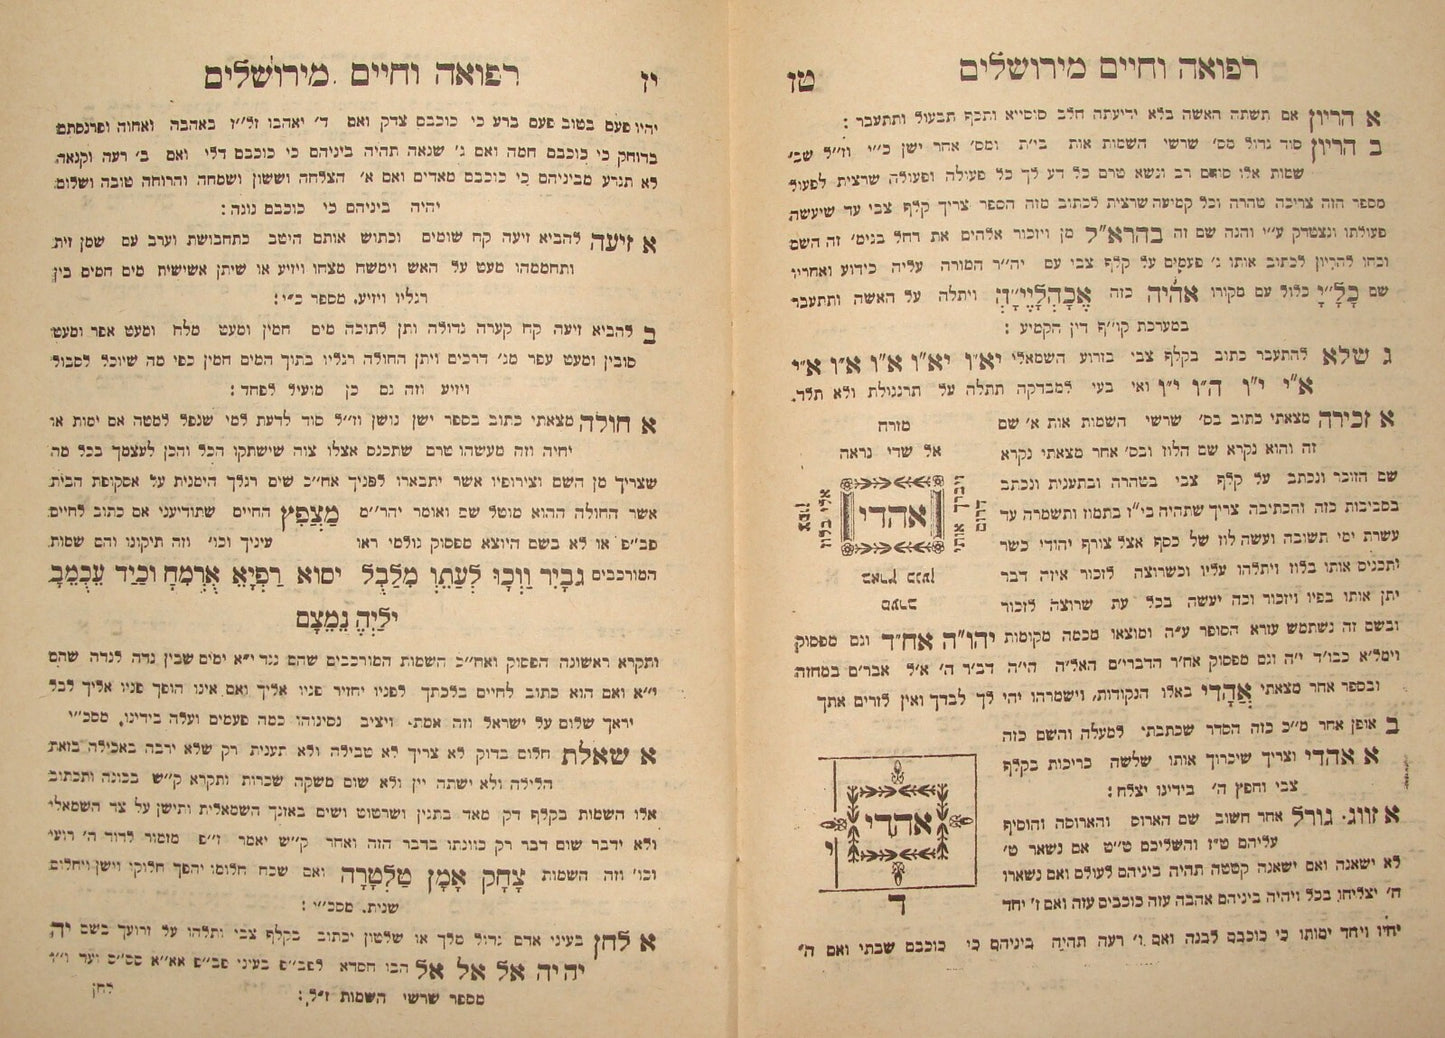 רפואה וחיים מירושלים
טז
א הריון אם תשתה האשה בלא ידיעתה חלב סוסייא ותכף תבעול ותתעבר :
ב הריון סוד גדול מס׳ שרשי השמות אות בי״ת ומס׳ אחר ישן כ״י וז״ל שב׳
שמות אלו סודם רב ונשא טרם כל דע לך כל פעולה ופעולה שרצית לפעול
מספר הזה צריכה טהרה וכל קמיעה שרצית לכתוב מזה הספר צריך קלף צבי עד שיעשה
פעולתו ונצטדק ע״י והנה שם זה בהרא״ל מן ויזכור אלהים את רחל בגימ׳ זה השם
וכחו להריון לכתוב אותו ג׳ פעמים על קלף צבי עם יה״ר המורה עליה כידוע ואחריו
שם כלול עם מקורו אהיה כזה ויתלה על האשה ותתעבר
במערכת קו״ף דין הקמיע :
ג שלא להתעבר כתוב בקלף צבי בזרוע השמאלי יא״ו יא״ו א״ו א״ו א״י
א״י י״ו ה״ו י״ו ואי בעי למבדקה תתלה על תרנגולת ולא תלד.
א זכירה מצאתי כתוב בס׳ שרשי השמות אות א׳ שם
זה והוא נקרא שם הלוז ובס׳ אחר מצאתי נקרא
שם הזוכר ונכתב על קלף צבי בטהרה ובתענית ונכתב
בסביבות כזה והכתיבה צריך שתהיה בי״ז בתמוז ותשמרה עד
עשרת ימי תשובה ועשה לוז של כסף אצל צורף יהודי כשר
ותכניס אותו בלוז ויתלהו עליו וכשרוצה לזכור איזה דבר
יתן אותו בפיו ויזכור וכה יעשה בכל עת שרוצה לזכור
מזרח
אל שדי נראה
אהדי
ויברך אותי
דרום
אלי בלוז
בארץ כנען
מערב
ובשם זה נשתמש עזרא הסופר ע״ה ומוצאו מכמה מקומות יהו״ה אח״ד וגם מפסוק
וימל״א כבו״ד י״ה וגם מפסוק אח״ר הדברי״ם האל״ה הי״ה דב״ר ה׳ א״ל אברי״ם במחזה
ובספר אחר מצאתי אהדי באלו הנקודות, וישמרהו יהי לך לבדך ואין לזרים אתך
ב אופן אחר מ״כ כזה הסדר שכתבתי למעלה והשם כזה
א אהדי וצריך שיכרוך אותו שלשה כריכות בקלף
צבי וחפץ ה׳ בידינו יצלח :
אהדי
י
ד
א זווג. גורל אחר חשוב שם הארוס והארוסה והוסיף
עליהם ט״ז והשליכם ט״ט אם נשאר ט׳
לא ישאנה ואם ישאנה קטטה תהיה ביניהם לעולם ואם נשארו
ח׳ יצליחו בכל ויהיה ביניהם אהבה עזה כוכבים עזה ואם ז׳ יחד
יחיו ויחד ימותו כי כוכבם לבנה ואם ו׳ רעה תהיה ביניהם כי כוכבם שבתי ואם ה׳
רפואה וחיים מירושלים
יז
יהיו פעם בטוב פעם ברע כי כוכבם צדק ואם ד׳ יאהבו זל״ז באהבה ואחוה ופרנסתם
ברוחק כי כוכבם חמה ואם ג׳ שנאה תהיה ביניהם כי כוכבם דלי ואם ב׳ רעה וקנאה
לא תגרע מביניהם כי כוכבם מאדים ואם א׳ הצלחה וששון ושמחה והרוחה טובה ושלום
יהיה ביניהם כי כוכבם נוגה :
א זיעה להביא זיעה קח שומים וכתוש אותם היטב כתחבושת וערב עם שמן זית
ותחממהו מעט על האש וימשח מצחו ויזיע או שיתן אשישית מים חמים בין
רגליו ויזיע. מספר כ״י :
ב להביא זיעה קח קערה גדולה ותן לתוכה מים חמין ומעט מלח ומעט אפר ומעט
סובין ומעט עפר מג׳ דרכים ויתן החולה רגליו בתוך המים חמין כפי מה שיוכל לסבול
ויזיע וזה גם כן מועיל לפחד :
א חולה מצאתי כתוב בספר ישן נושן וז״ל סוד לדעת למי שנפל למטה אם ימות או
יחיה וזה מעשהו טרם שתכנס אצלו צוה שישתקו הכל והכן לעצמך בכל מה
שצריך מן השם וצירופיו אשר יתבארו לפניך אח״כ שים רגלך הימנית על אסקופת הבית
אשר החולה ההוא מוטל שם ואומר יהר״מ מצפץ החיים שתודיעני אם כתוב לחיים
פב״פ או לא בשם היוצא מפסוק גולמי ראו עיניך וכו׳ וזה תיקונו והם שמות
המורכבים גביר ווכו לעתו מלבל יסוא רפיא ארמח וכיד עכמב
יליה נמצם
ותקרא ראשונה הפסוק ואח״כ השמות המורכבים שהם נגד י״א ימים שבין נדה לנדה שהם
י״א ואם הוא כתוב לחיים בלכתך לפניו יחזיר פניו אליך ואם אינו הופך פניו אליך לבל
יראך שלום על ישראל וזה אמת. ויציב נסינוהו כמה פעמים ועלה בידינו, מסכ״י
א שאלת חלום בדוק לא צריך לא טבילה ולא תענית רק שלא ירבה באכילה בזאת
הלילה ולא ישתה יין ולא שום משקה שכרות ותקרא ק״ש בכונה ותכתוב
אלו השמות בקלף דק מאד בתגין ושרטוט ושים באזנך השמאלית ותישן על צד השמאלי
ולא ידבר שום דבר רק כוונתו בדבר הזה ואחר ק״ש יאמר ז״פ מזמור לדוד ה׳ רועי
וכו׳ וזה השמות צחק אמן טלטרה ואם שכח חלומו יהפך חלוקו וישן ויחלום
שנית. מסכ״י :
א לחן בעיני אדם גדול מלך או שלטון יכתוב בקלף צבי ותלהו על זרועך בשם יה
יהיה אל אל אל הבו חסדא לפב״פ בעיני פב״פ אא״א סס״ס ועד
מספר שרשי השמות ז״ל :
לחן